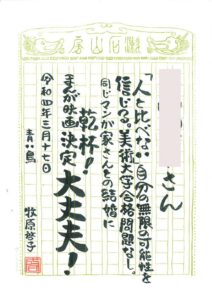 漱石山房
さん
「人と比べない自分の無限の可能性を
信じる」美術大学合格問題なし。
同じマンガ家さんとの結婚に
乾杯!
まんが映画決定 大丈夫!
令和四年三月十七日
青い鳥
牧原